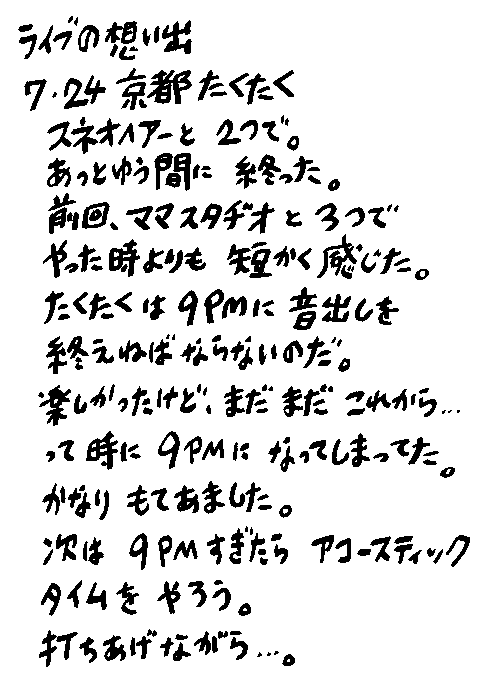 ライブの想い出
7.24 京都たくたく
スネオヘアーと 2つで。
あっとゆう間に 終った。
前回、ママスタヂオと 3つで
やった時よりも 短かく感じた。
たくたくは 9PMに 音出しを
終えねば ならないのだ。
楽しかったけど、まだまだ これから…
って時に 9PMに なってしまってた。
かなり もてあました。
次は 9PMすぎたら アコースティック
タイムを やろう。
打ちあげながら…。